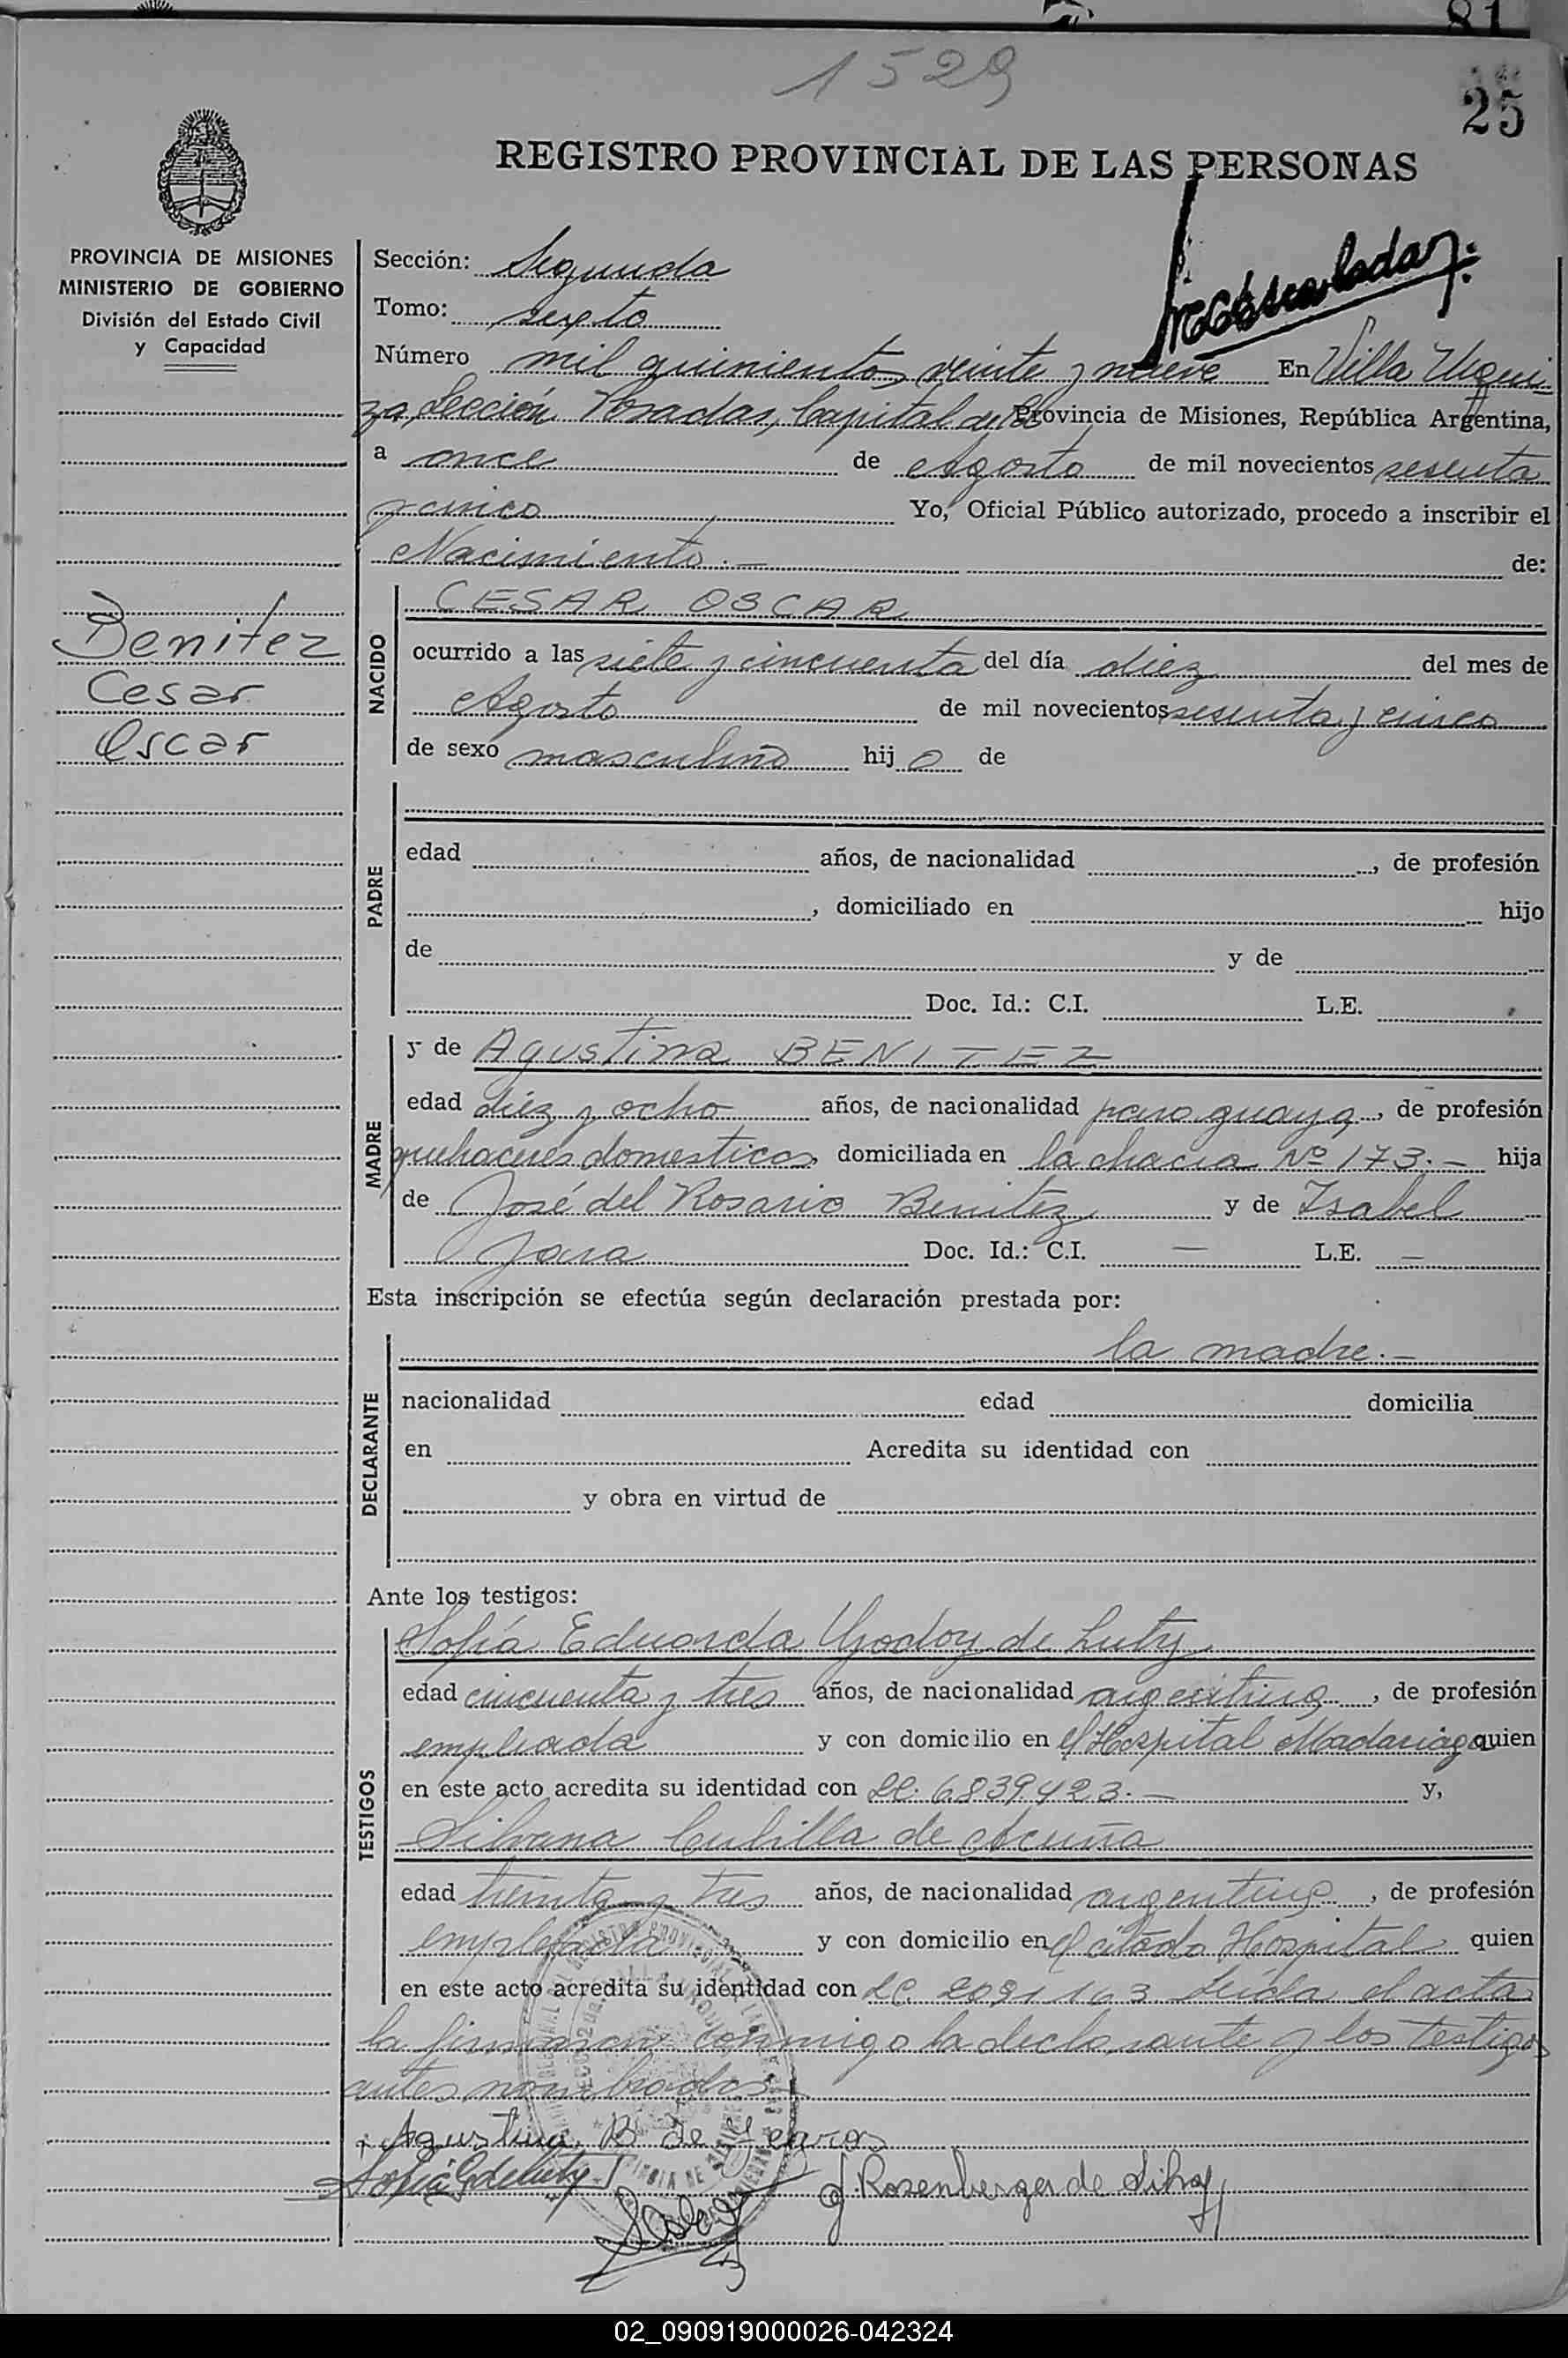 81
1529
25
REGISTRO PROVINCIAL DE LAS PERSONAS
PROVINCIA DE MISIONES
MINISTERIO DE GOBIERNO
División del Estado Civil
y Capacidad
Benitez
Cesar
Oscar
Sección: Segunda
Tomo: sexto
Número mil quinientos veinte y nueve En Villa Urqui-
za, Sección Posadas, Capital de la Provincia de Misiones, República Argentina,
a once de Agosto de mil novecientos sesenta
y cinco Yo, Oficial Público autorizado, procedo a inscribir el
Nacimiento.— de:
NACIDO
CESAR OSCAR
ocurrido a las siete y cincuenta del día diez del mes de
Agosto de mil novecientos sesenta y cinco
de sexo masculino hijo de
PADRE
edad años, de nacionalidad , de profesión
, domiciliado en hijo
de y de
Doc. Id.: C.I. L.E.
MADRE
y de Agustina BENITEZ
edad diez y ocho años, de nacionalidad paraguaya, de profesión
quehaceres domesticos domiciliada en la chacra Nº 173.— hija
de José del Rosario Benitez y de Isabel
Jara Doc. Id.: C.I. — L.E. —
Esta inscripción se efectúa según declaración prestada por:
DECLARANTE
la madre.—
nacionalidad edad domicilia
en Acredita su identidad con
y obra en virtud de
Ante los testigos:
TESTIGOS
Sofía Eduarda Godoy de Luty
edad cincuenta y tres años, de nacionalidad argentina, de profesión
empleada y con domicilio en el Hospital Madariaga quien
en este acto acredita su identidad con LC. 6.839.423.— y,
Silvana Cubilla de Acuña
edad treinta y tres años, de nacionalidad argentina, de profesión
empleada y con domicilio en el citado Hospital quien
en este acto acredita su identidad con LC 2091163 Leída el acta
la firmaron conmigo la declarante y los testigos
antes nombrados
Agustina B de
J. Rosenberger de Silva
02_090919000026-042324